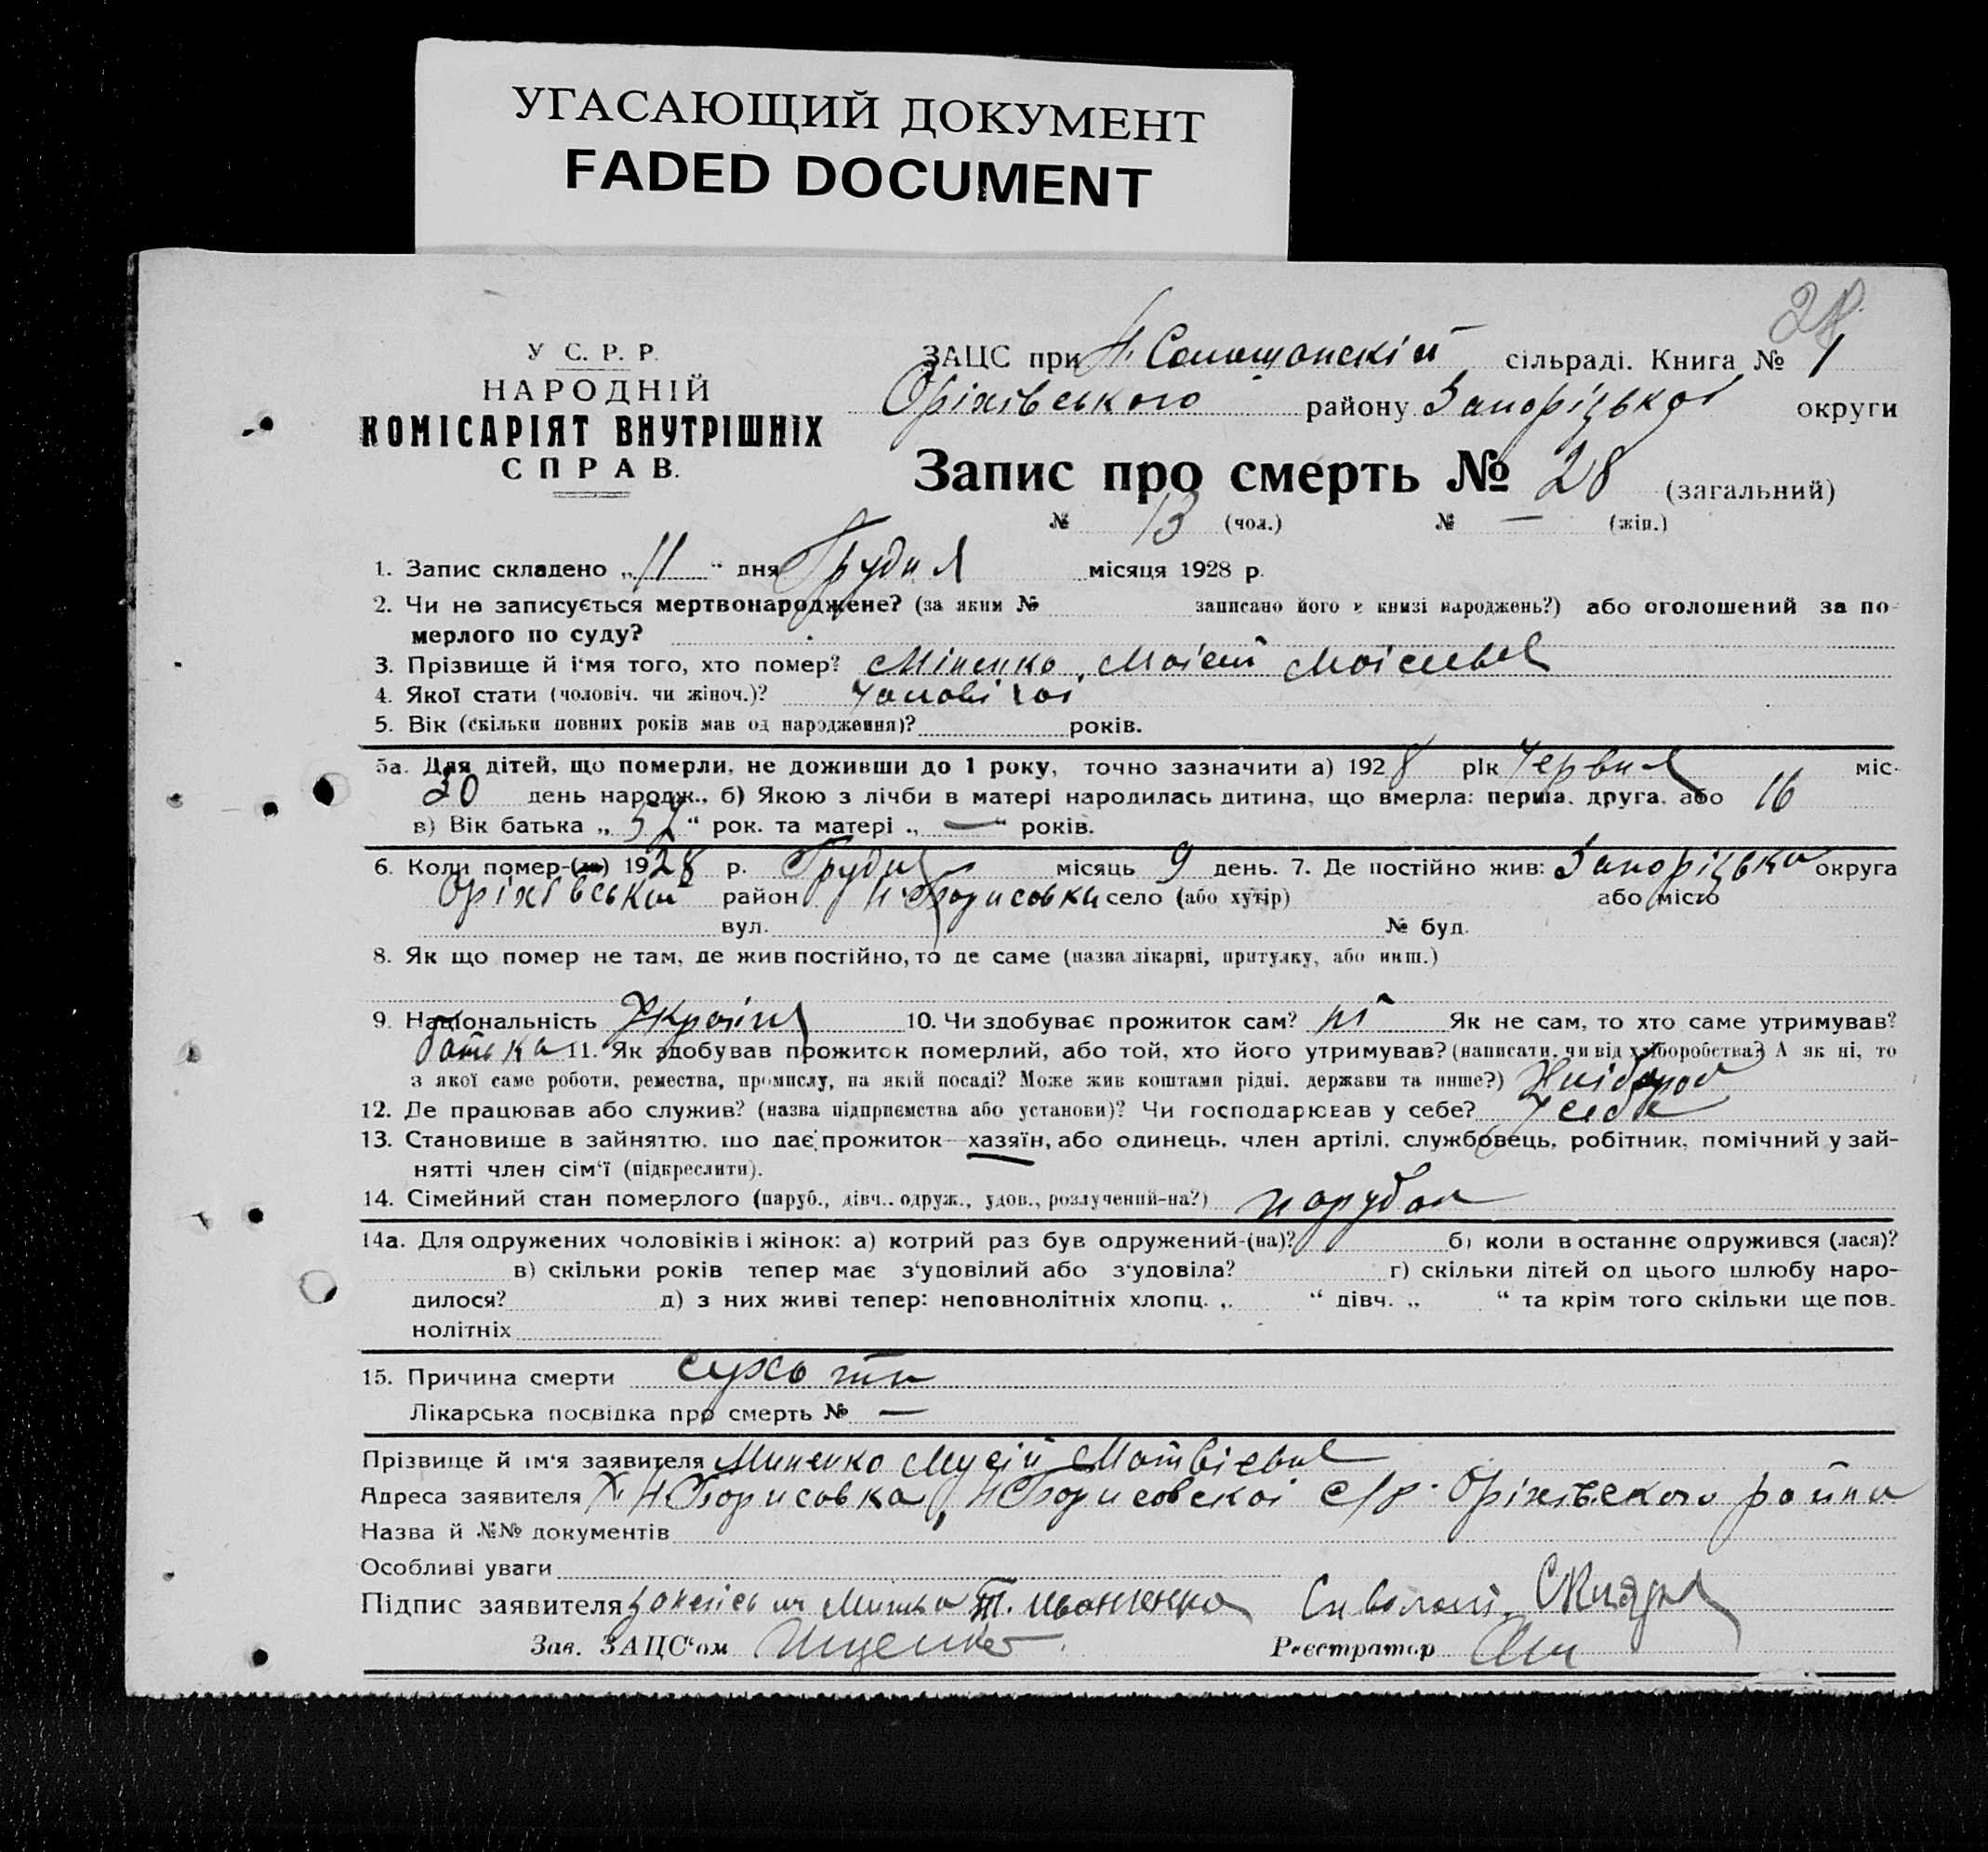 УГАСАЮЩИЙ ДОКУМЕНТ
FADED DOCUMENT
28
У С. Р. Р.
НАРОДНІЙ
КОМІСАРІЯТ ВНУТРІШНІХ
СПРАВ.
ЗАЦС при Н. сільраді. Книга № 1
Оріхівського району Запорізької округи
Запис про смерть № 28 (загальний)
№ 13 (чол.) № — (жін.)
1. Запис складено „11“ дня Грудня місяця 1928 р.
2. Чи не записується мертвонароджене? (за яким № записано його в книзі народжень?) або оголошений за по-
мерлого по суду?
3. Прізвище й і'мя того, хто помер? Міненко, Моісей Моісеевич
4. Якої стати (чоловіч. чи жіноч.)? Чоловічої
5. Вік (скільки повних років мав од народження)? років.
5а. Для дітей, що померли, не доживши до 1 року, точно зазначити а) 1928 рік Червня міс-
30 день народж., б) Якою з лічби в матері народилась дитина, що вмерла: перша. друга. або 16
в) Вік батька „57“ рок. та матері „—“ років.
6. Коли помер-(ла) 1928 р. Грудня місяць 9 день. 7. Де постійно жив: Запорізька округа
Оріхівський район Н Борисовка село (або хутір) або місто
вул. № буд.
8. Як що помер не там, де жив постійно, то де саме (назва лікарні, притулку, або инш.)
9. Національність Україн 10. Чи здобуває прожиток сам? ні Як не сам, то хто саме утримував?
батько 11. Як здобував прожиток померлий, або той, хто його утримував? (написати, чи від хліборобства? А як ні, то
з якої саме роботи, ремества, промислу, на якій посаді? Може жив коштами рідні. держави та инше?) Хлібороб
12. Де працював або служив? (назва підприємства або установи)? Чи господарював у себе? У себе
13. Становише в зайняттю, шо дає прожиток—хазяїн, або одинець, член артілі, службовець, робітник, помічний у зай-
нятті член сім'ї (підкреслити).
14. Сімейний стан померлого (паруб., дівч.. одруж., удов., розлучений-на?) парубок
14а. Для одружених чоловіків і жінок: а) котрий раз був одружений-(на)? б) коли востаннє одружився (лася)?
в) скільки років тепер має з'удовілий або з'удовіла? г) скільки дітей од цього шлюбу наро-
дилося? д) з них живі тепер: неповнолітніх хлопц. „ “ дівч. „ “ та крім того скільки ще пов.
нолітніх
15. Причина смерти сухоти
Лікарська посвідка про смерть № —
Прізвище й ім'я заявителя Миненко Мусій Матвієвич
Адреса заявителя Х. Н Борисовка, Н Борисовской с/р. Оріхівского району
Назва й №№ документів
Особливі уваги
Підпис заявителя
Зав. ЗАЦС'ом Іщенко Реєстратор